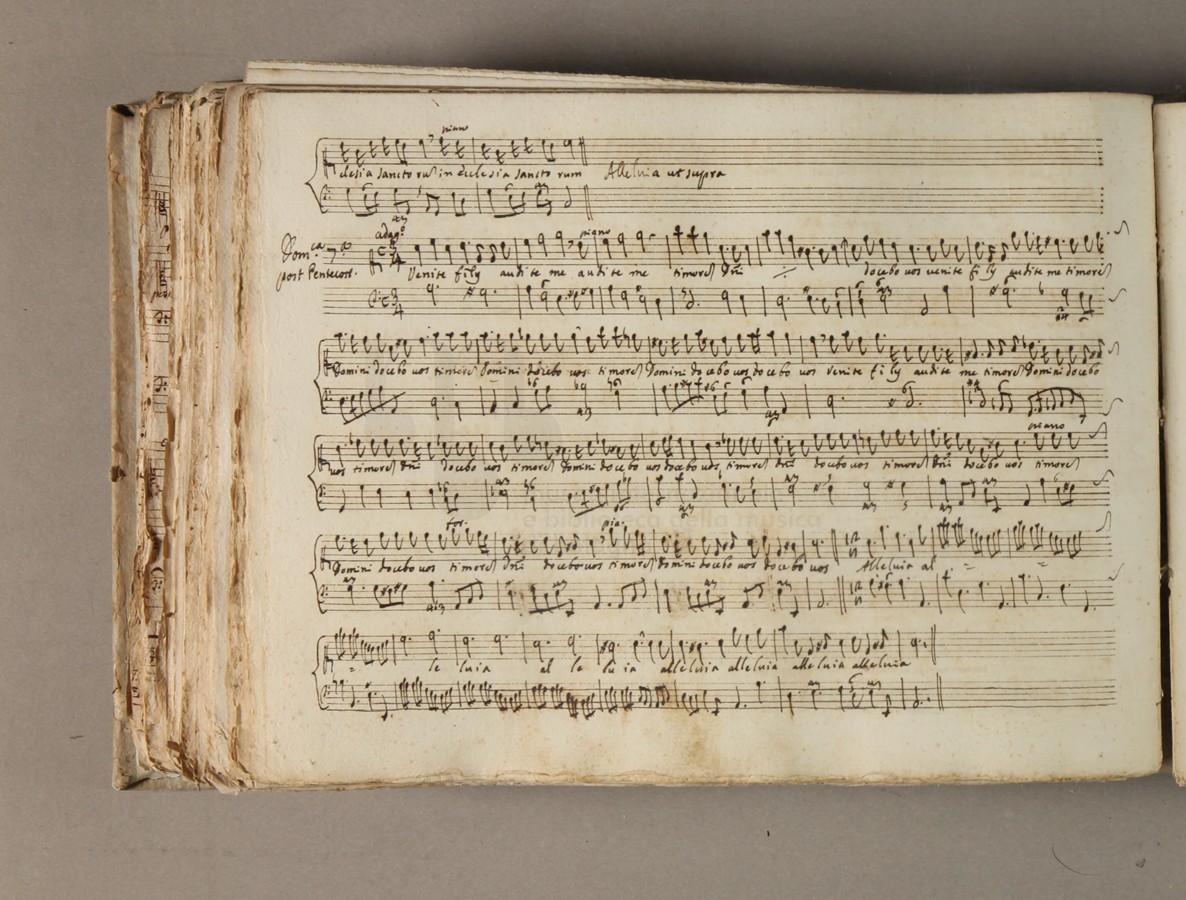 piano
clesia sancto rum in ecclesia sancto rum Alleluia ut supra
adag.º
Dom.ca 7.a
post Pentecost.
piano
Venite filij audite me audite me timorem Dñi docebo vos venite fi lij audite me timorem
Domini docebo vos timorem Domini docebo vos timorem Domini docebo vos docebo vos venite fi lij audite me timorem Domini docebo
piano
vos timorem Dñi docebo vos timorem Domini docebo vos docebo vos timorem Dñi docebo vos timorem Dñi docebo vos timorem
for. pia.
Domini docebo vos timorem Dñi docebo vos timorem Domini docebo vos docebo vos Alleluia al
le luia al le lu ia alleluia alleluia alleluia alleluia
e biblioteca della musica